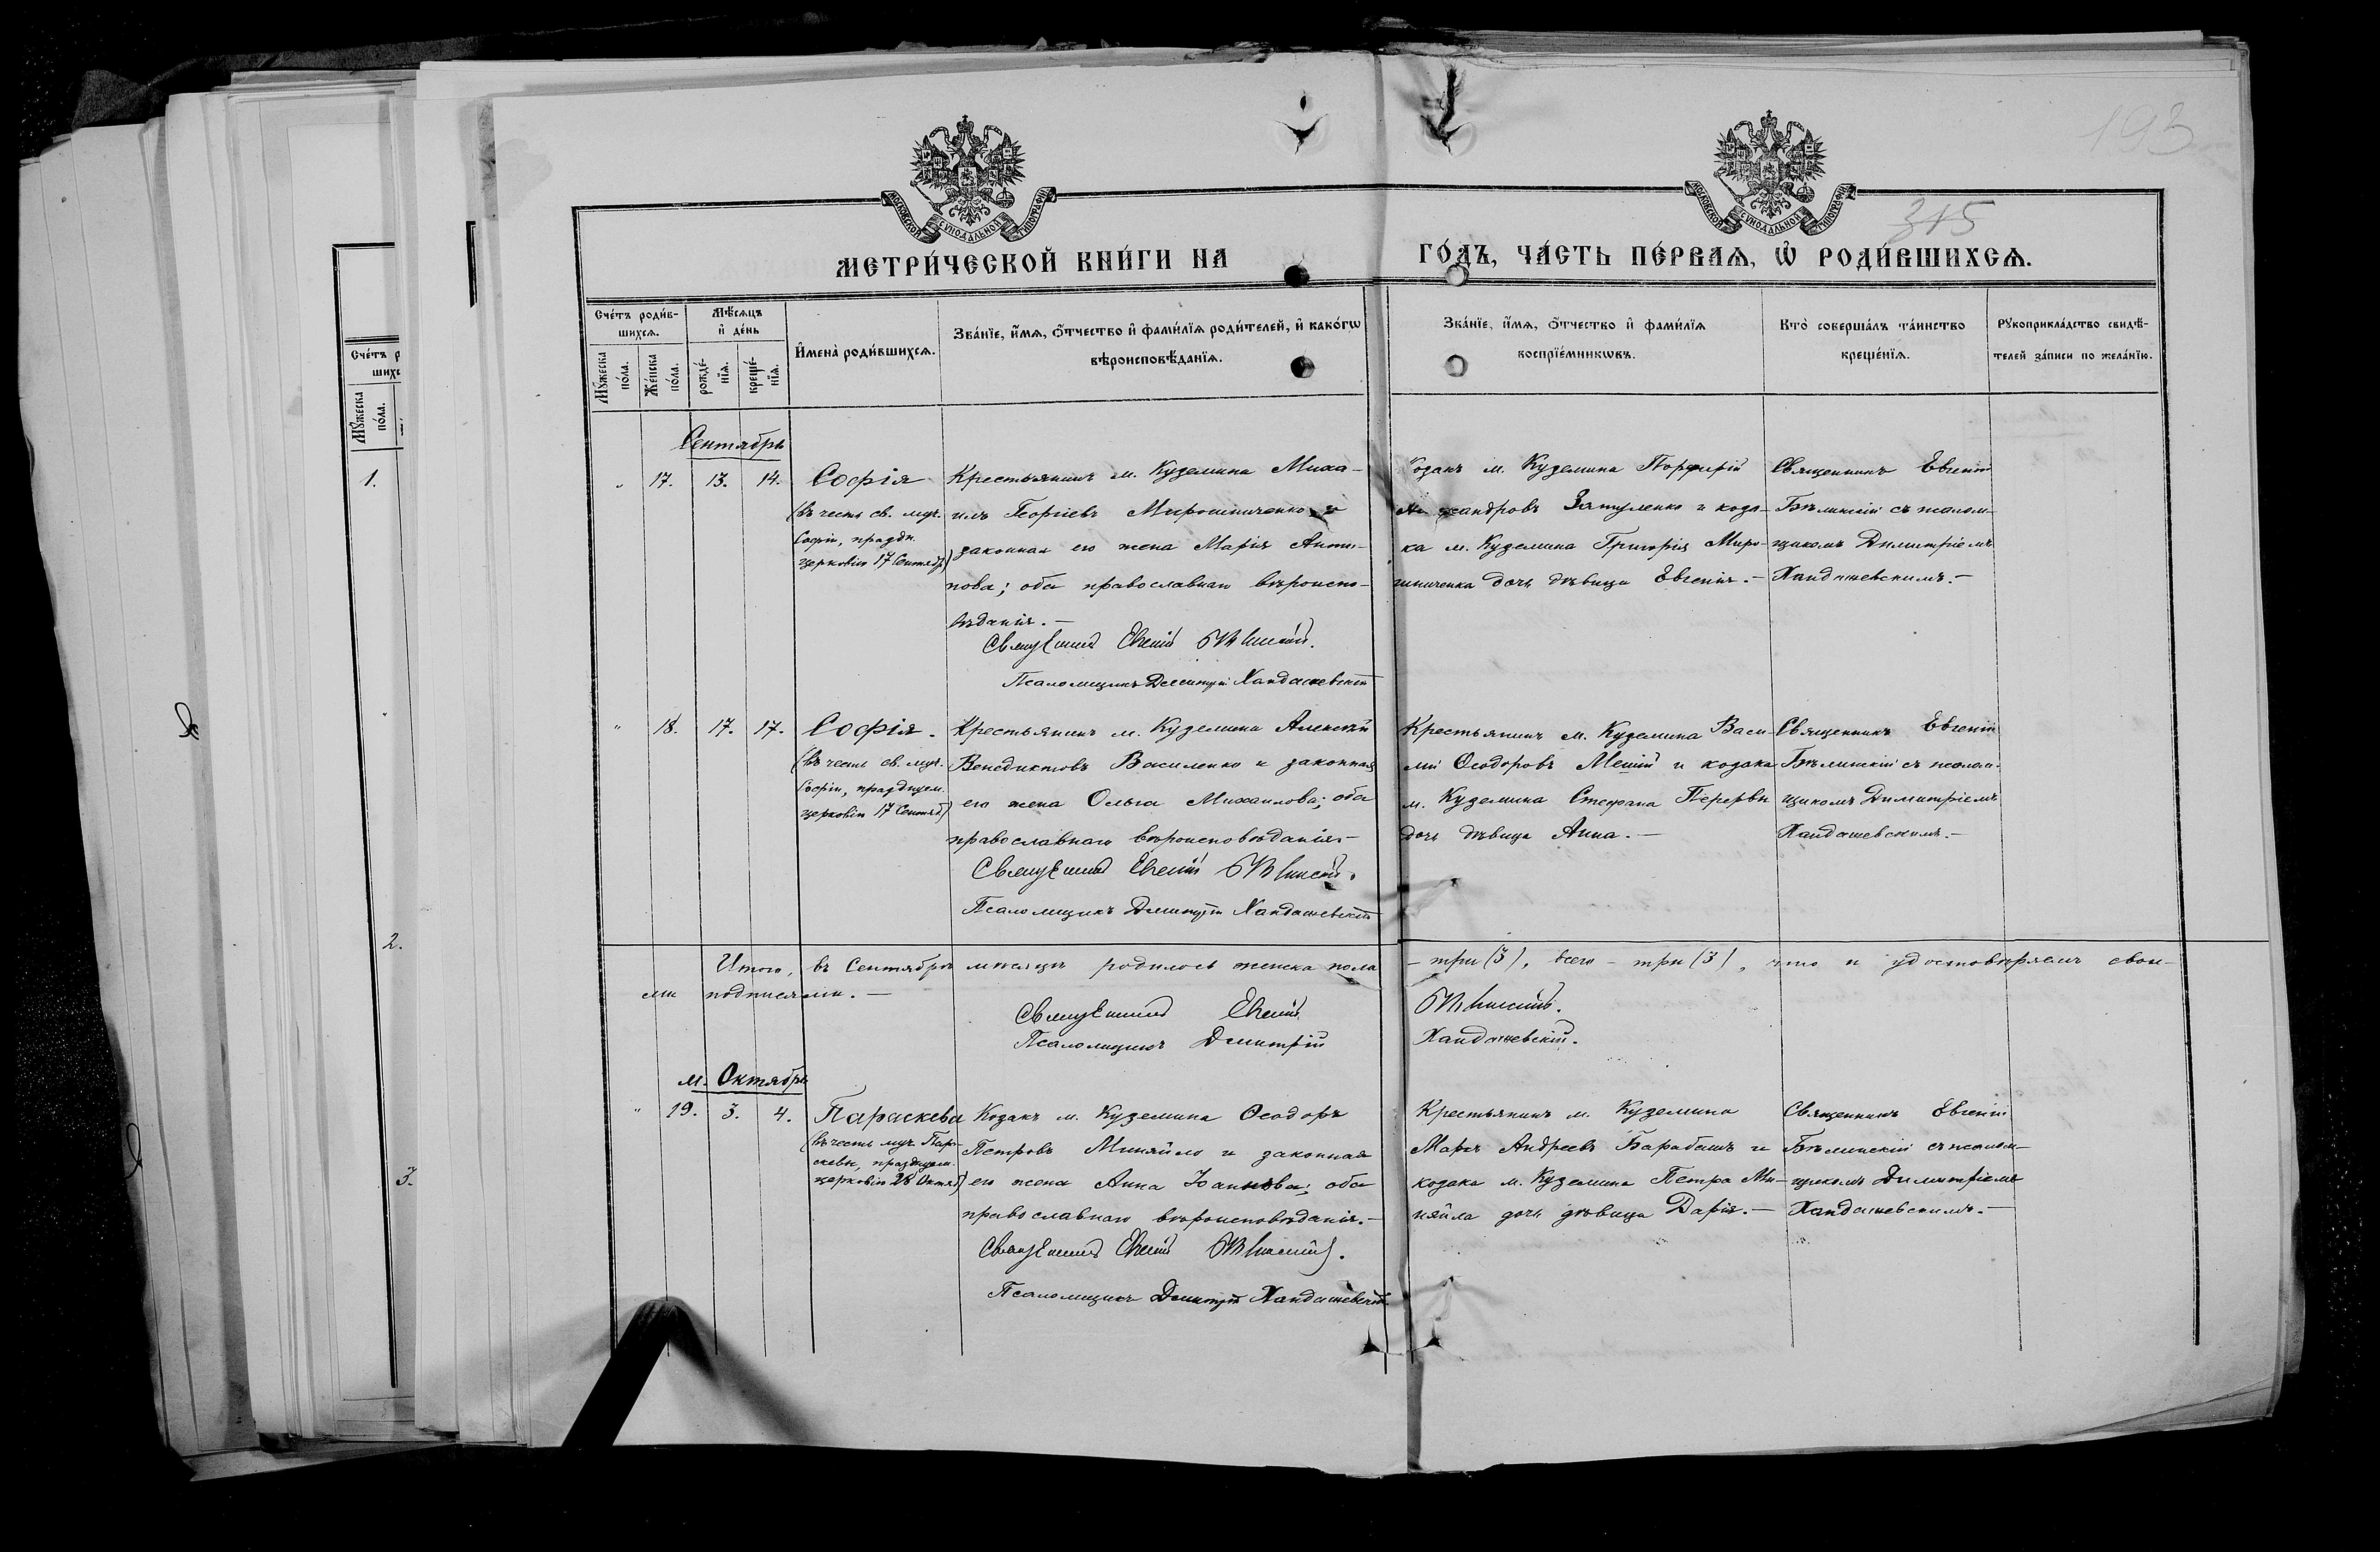 193
315
МОСКОВСКОЙ СѴНОДАЛЬНОЙ ТИПОГРАФІИ
МОСКОВСКОЙ СѴНОДАЛЬНОЙ ТИПОГРАФІИ
МЕТРИ́ЧЕСКОЙ КНИ́ГИ НА ГО́ДЪ, ЧА́СТЬ ПЕ́РВАѦ, Ѡ҆ РОДИ́ВШИХСѦ.
Сче́тъ роди́в-
шихсѧ.
Мѣ́сѧцъ
и҆ де́нь
Мꙋ́жеска по́ла.
Же́нска по́ла.
рожде́-
нїѧ.
креще́-
нїѧ.
И҆мена̀ роди́вшихсѧ.
Зва́нїе, и҆́мѧ, ѻ҆́тчество и҆ фами́лїѧ роди́телей, и҆ како́гѡ
вѣроисповѣ́данїѧ.
Зва́нїе, и҆́мѧ, ѻ҆́тчество и҆ фами́лїѧ
воспрїе́мникѡвъ.
Кто̀ соверша́лъ та́инство
креще́нїѧ.
Рꙋкоприкла́дство свидѣ́-
телей за́писи по жела́нїю.
Сче́тъ
Мꙋ́жеска по́ла.
1.
2.
3.
Сентябрь
" 17. 13. 14. Софія
(въ честь св. муч.
Софіи, праздн.
церковію 17 Сентяб)
Крестьянинъ м. Куземина Миха-
илъ Георгіевъ Мирошниченко и
законная его жена Марія Анти-
пова; оба православнаго вѣроиспо-
вѣданія. —
Священникъ Евгеній Бѣлинскій.
Псаломщикъ Димитрій Хандажевскій
Козакъ м. Куземина Порфирій
Александровъ Затуленко и коза-
ка м. Куземина Григорія Миро-
шниченка дочь дѣвица Евгенія. —
Священникъ Евгеній
Бѣлинскій съ псалом-
щикомъ Димитріемъ
Хандажевскимъ. —
" 18. 17. 17. Софія.
(въ честь св. муч.
Софіи, празднуем.
церковію 17 Сентяб)
Крестьянинъ м. Куземина Алексѣй
Венедиктовъ Василенко и законная
его жена Ольга Михаилова; оба
православнаго вѣроисповѣданія —
Священникъ Евгеній Бѣлинскій.
Псаломщикъ Димитрій Хандажевскій
Крестьянинъ м. Куземина Васи-
лій Ѳеодоровъ и козака
м. Куземина Стефана Перервы
дочь дѣвица Анна. —
Священникъ Евгеній
Бѣлинскій съ псалом-
щикомъ Димитріемъ
Хандажевскимъ. —
Итого, въ Сентябрѣ мѣсяцѣ родилось женска пола — три (3), всего — три (3), что и удостовѣряемъ свои-
ми подписями. —
Священникъ Евгеній Бѣлинскій.
Псаломщикъ Димитрій Хандажевскій.
м. Октябрь
" 19. 3. 4. Параскева
(въ честь муч. Пара-
скевы, празднуем.
церковію 28 Октяб)
Козакъ м. Куземина Ѳеодоръ
Петровъ Миняйло и законная
его жена Анна Іоаннова; оба
православнаго вѣроисповѣданія. —
Священникъ Евгеній Бѣлинскій.
Псаломщикъ Димитрій Хандажевскій.
Крестьянинъ м. Куземина
Маркъ Андреевъ Барабашъ и
козака м. Куземина Петра Ми-
няйла дочь дѣвица Дарія. —
Священникъ Евгеній
Бѣлинскій съ псалом-
щикомъ Димитріемъ
Хандажевскимъ. —